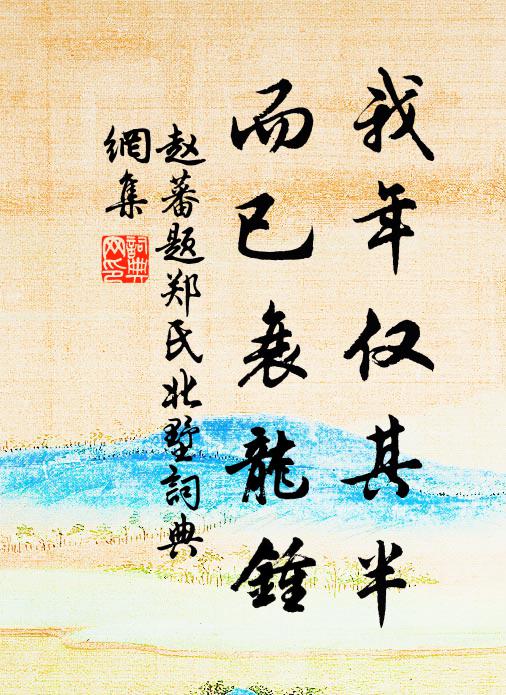 我年仅其半
而已衰龍鍾
赵蕃题郑氏北墅詞典
網集
詞典
网印